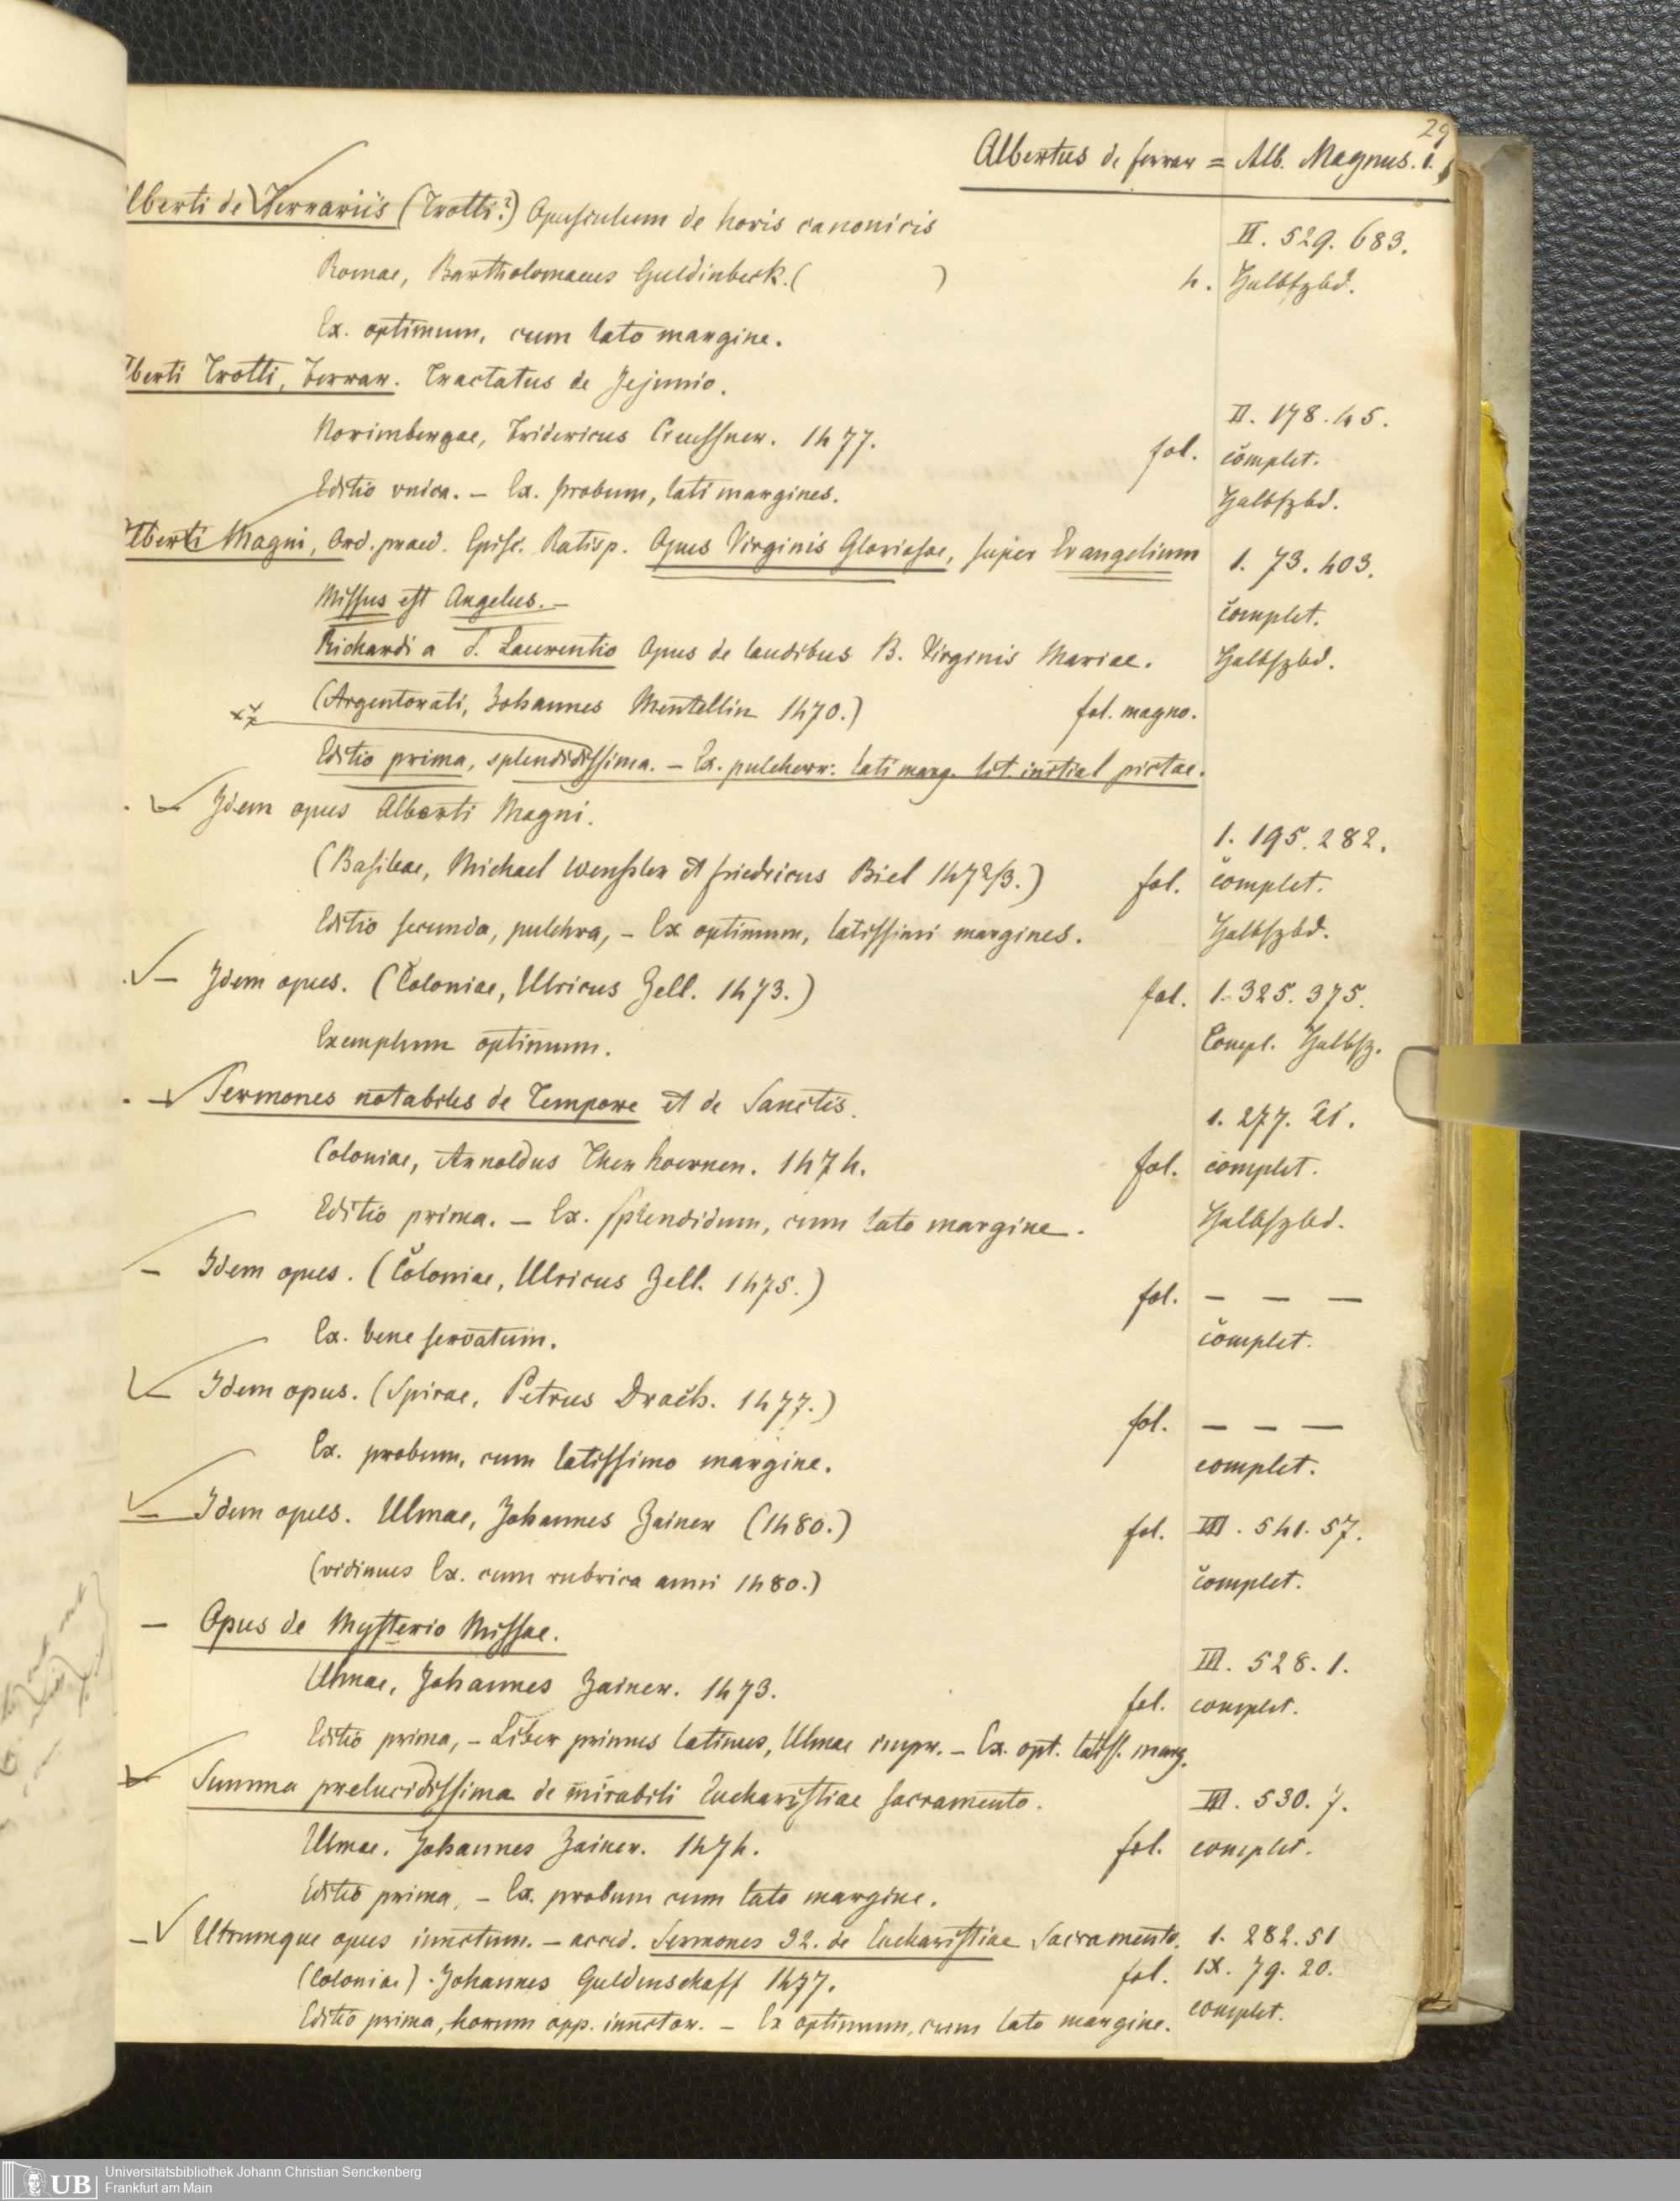 29
Albertus de ferrar = Alb. Magnus. 1.
lberti de Ferrariis (Trotti?) Opusculum de horis canonicis
II. 529. 683.
Romae, Bartholomaeus Guldinbeck. ( ) 4. Halbfzbd.
Ex. optimum, cum lato margine.
lberti Trotti, Ferrar. Tractatus de Jejunio.
II. 178. 45.
Norimbergae, Fridericus Creussner. 1477. fol. complet.
Editio unica. – Ex. probum, lati margines. Halbfzbd.
Alberti Magni, Ord. praed. Episc. Ratisp. Opus Virginis Gloriosae, super Evangelium 1. 73. 403.
Missus est Angelus. – complet.
Richardi a S. Laurentio Opus de laudibus B. Virginis Mariae. Halbfzbd.
(Argentorati, Johannes Mentellin 1470.) fol. magno.
Editio prima, splendidissima. – Ex. pulcherr: lati marg. lit. initial pictae.
Idem opus Alberti Magni.
1. 195. 282.
(Basileae, Michael Wenssler et friedricus Biel 1472/3.) fol. complet.
Editio secunda, pulchra, – Ex optimum, latissimi margines. Halbfzbd.
– Idem opus. (Coloniae, Ulricus Zell. 1473.) fol. 1. 325. 375.
Exemplum optimum. Compl. Halbfz.
Sermones notabiles de Tempore et de Sanctis.
1. 277. 21.
Coloniae, Arnoldus Ther hoernen. 1474. fol. complet.
Editio prima. – Ex. splendidum, cum lato margine. Halbfzbd.
– Idem opus. (Coloniae, Ulricus Zell. 1475.) fol. – – –
Ex. bene servatum. complet.
– Idem opus. (Spirae, Petrus Drach. 1477.) fol. – – –
Ex. probum, cum latissimo margine. complet.
– Idem opus. Ulmae, Johannes Zainer (1480.) fol. III. 541. 57.
(vidimus Ex. cum rubrica anni 1480.) complet.
– Opus de Mysterio Missae.
III. 528. 1.
Ulmae, Johannes Zainer. 1473. fol. complet.
Editio prima, – Liber primus latinus, Ulmae impr. – Ex. opt. latiss. marg.
Summa prelucidissima de mirabili Eucharistiae sacramento. III. 530. 7.
Ulmae, Johannes Zainer. 1474. fol. complet.
Editio prima, – Ex. probum cum lato margine.
– Utrumque opus iunctum. – acced. Sermones 32. de Eucharistiae Sacramento. 1. 282. 51
(Coloniae) Johannes Guldenschaff 1477. fol. IX. 79. 20.
Editio prima, horum opp. iunctor. – Ex optimum, cum lato margine. complet.
UB
Universitätsbibliothek Johann Christian Senckenberg
Frankfurt am Main